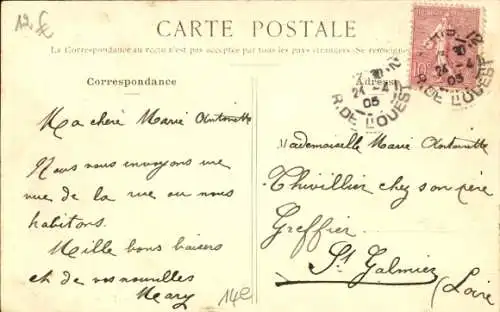 12.f
CARTE POSTALE
La Correspondance au recto n'est pas acceptée par tous les pays étrangers. Se renseigner
Correspondance
Ma chère Marie Antoinette
Nous vous envoyons une
vue de la rue ou nous
habitons.
Mille bons baisers
et de vos nouvelles
Mary
14e
Adresse
24 - 4
05
R. DE L'OUEST
24 - 4
05
R. DE L'OUEST
10
Mademoiselle Marie Antoinette
Thivillier chez son père
Greffier
St Galmier
(Loire